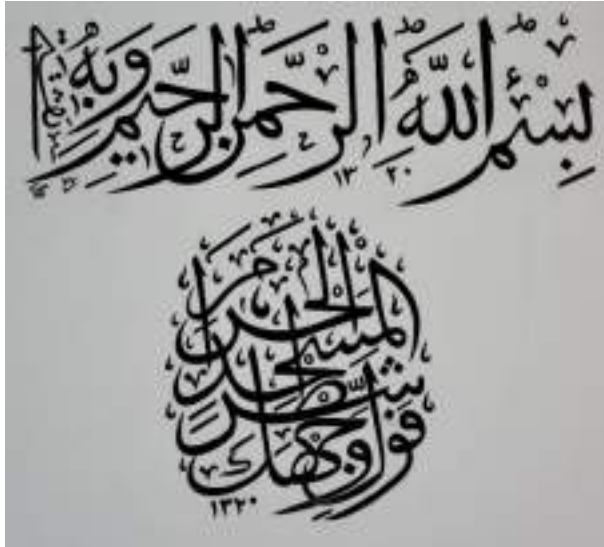 بِسْمِ اللَّهِ الرَّحْمٰنِ الرَّحِيمِ وَبِهِ
١٣٢٠
فَوَلِّ وَجْهَكَ شَطْرَ الْمَسْجِدِ الْحَرَامِ
١٣٢٠